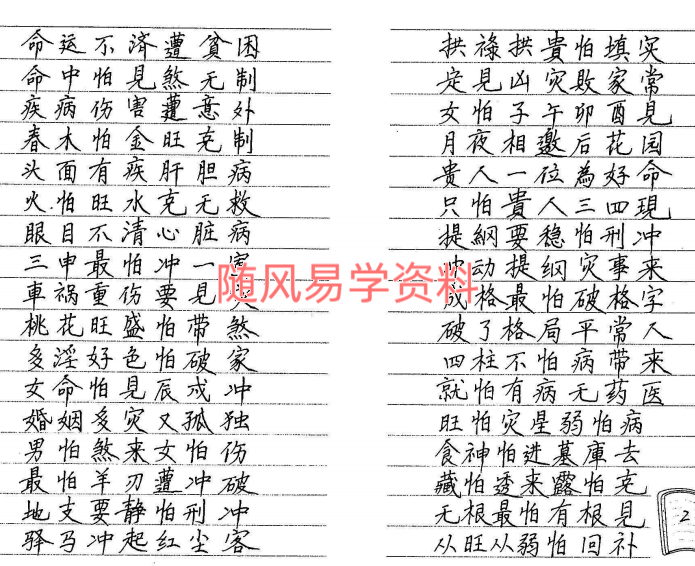 命运不济遭貧困
命中怕見煞无制
疾病伤害遭意外
春木怕金旺克制
头面有疾肝胆病
火怕旺水克无救
眼目不清心脏病
三申最怕冲一寅
車祸重伤要見
桃花旺盛怕带煞
多淫好色怕破家
女命怕見辰戌冲
婚姻多灾又孤独
男怕煞来女怕伤
最怕羊刃遭冲破
地支要静怕刑冲
驿马冲起红尘客
拱祿拱貴怕填实
定見凶灾敗家常
女怕子午卯酉見
月夜相邀后花园
貴人一位為好命
只怕貴人三四現
提綱要稳怕刑冲
冲动提纲灾事来
成格最怕破格字
破了格局平常人
四柱不怕病带来
就怕有病无药医
旺怕灾星弱怕病
食神怕进墓庫去
藏怕透来露怕克
无根最怕有根見
从旺从弱怕回补
随风易学资料
2